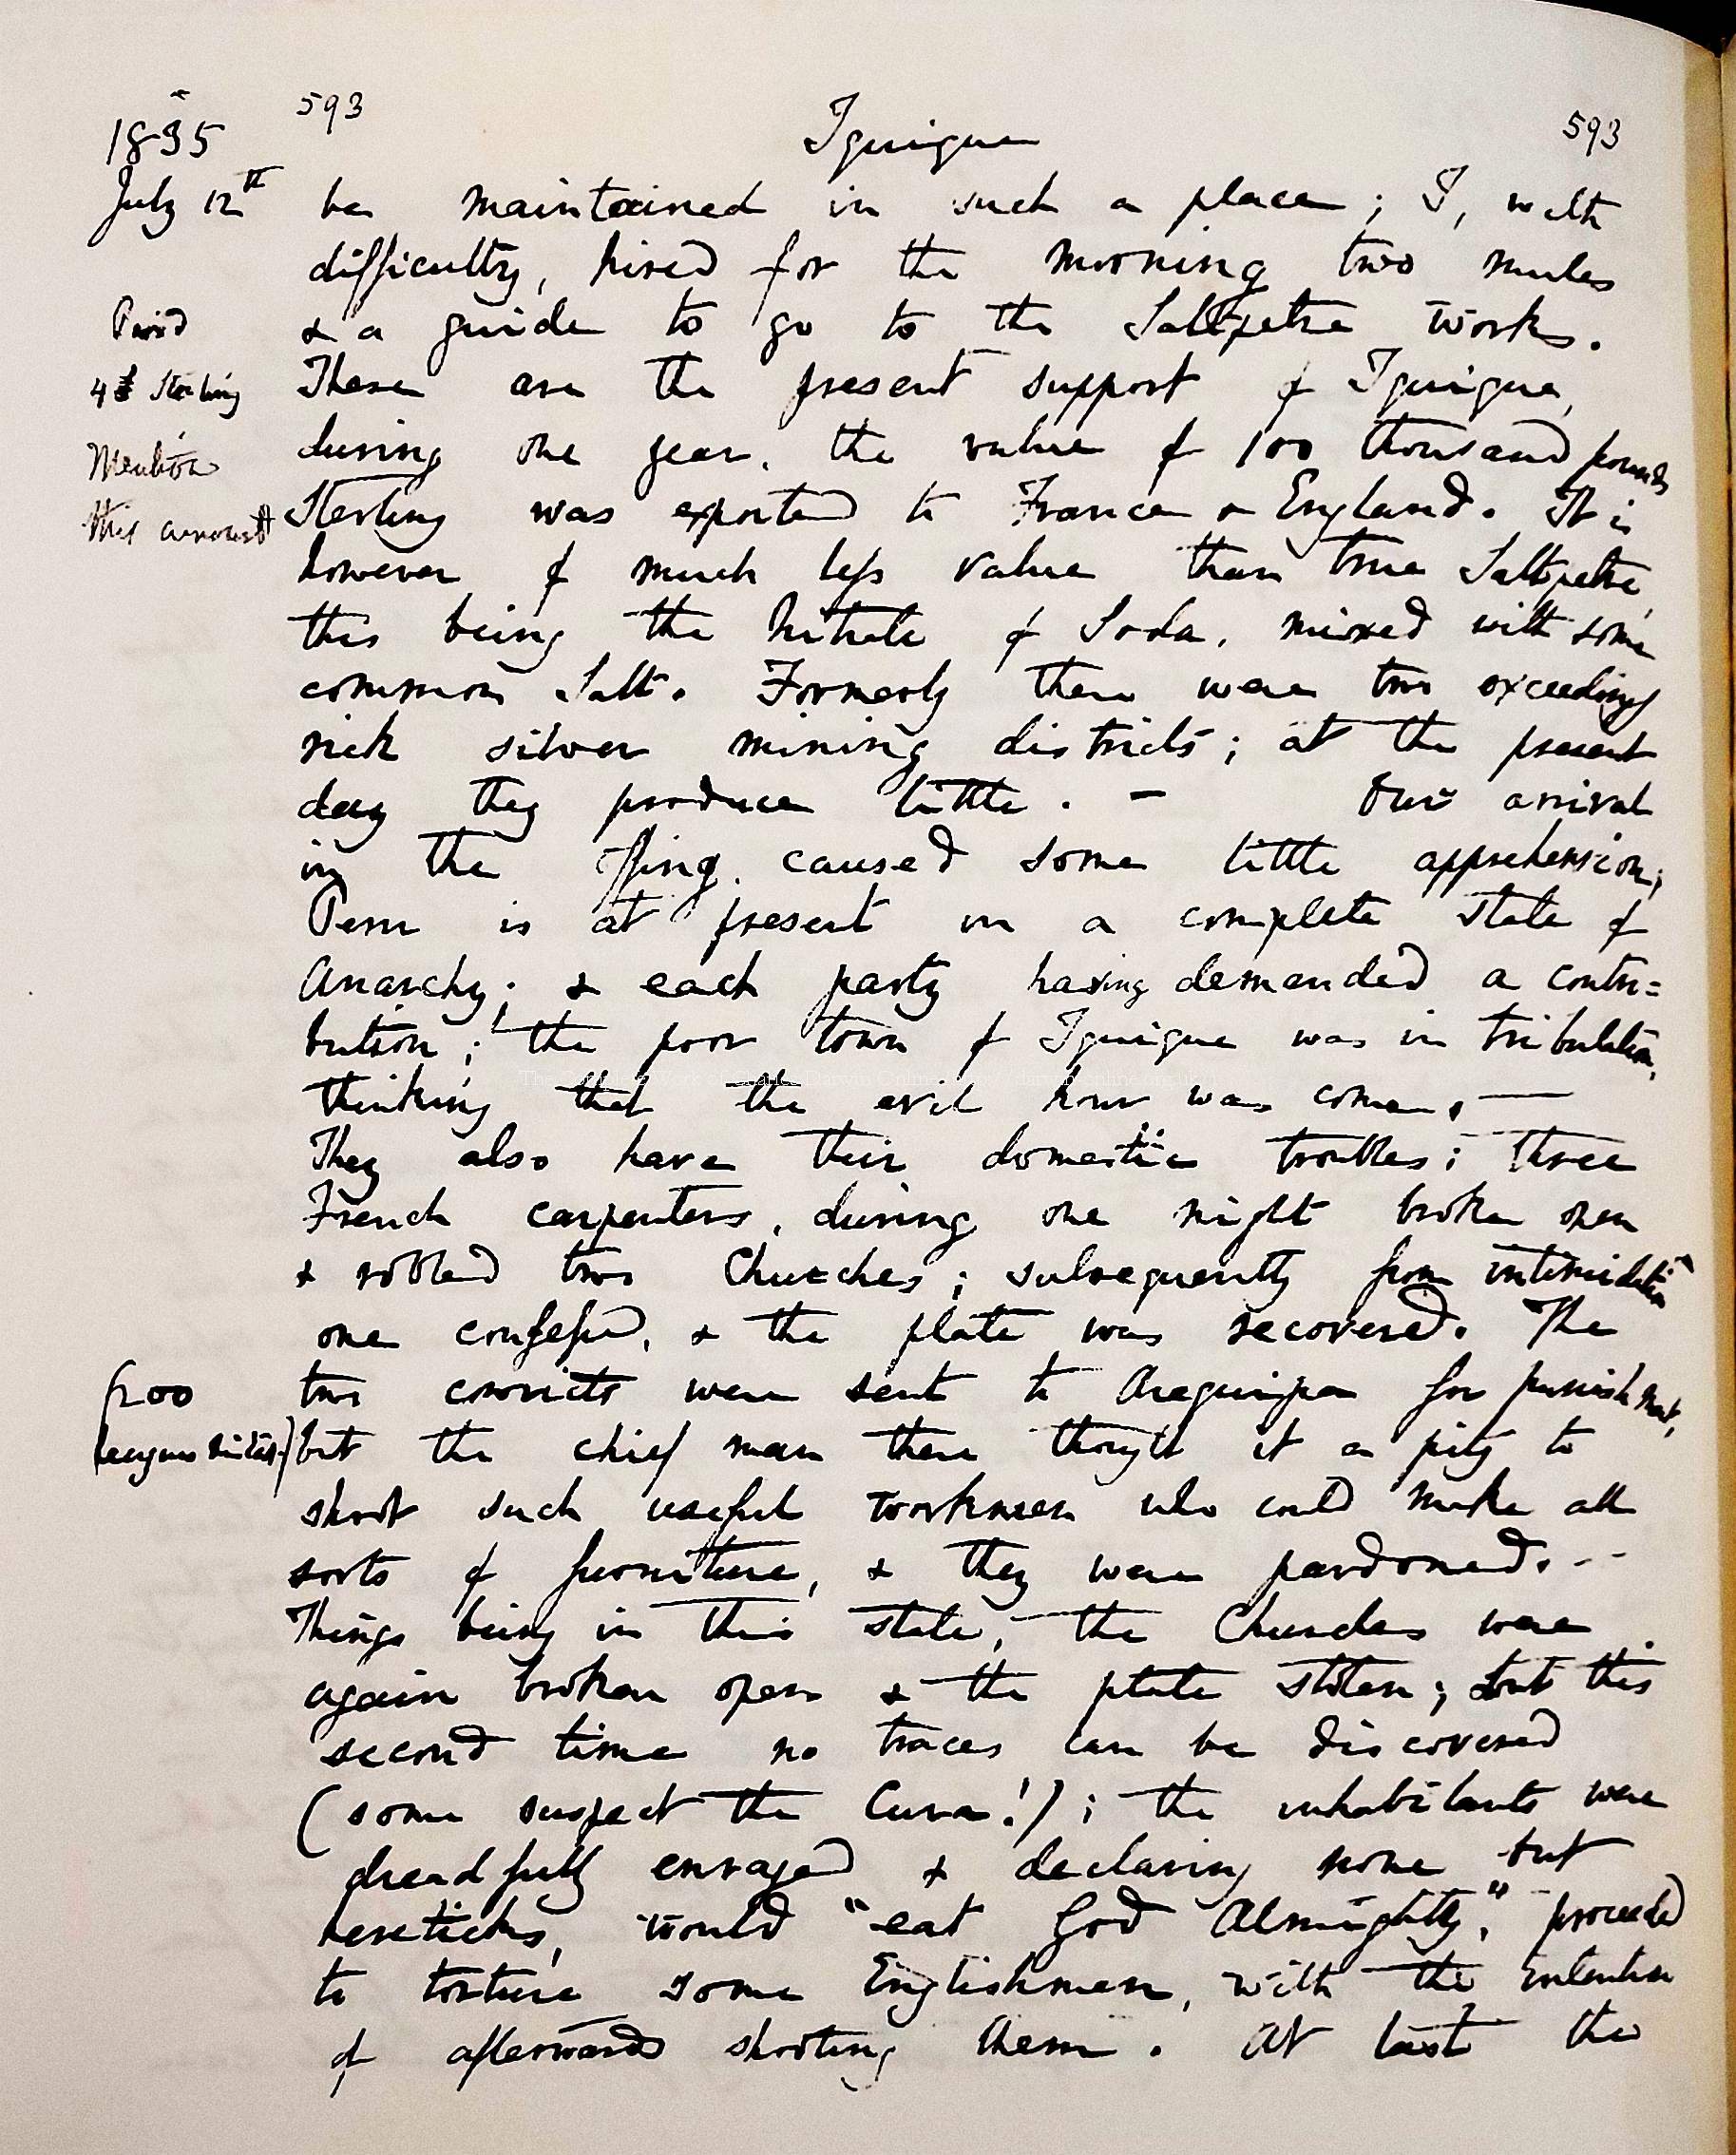 593 Iquique 593
1835
July 12th be maintained in such a place; I, with
difficulty, hired for the morning two mules
Paid & a guide to go to the Saltpetre works.
4£ Sterling These are the present support of Iquique,
Mention during one year, the value of 100 thousand pounds
this amount Sterling was exported to France & England. It is
however of much less value than true Saltpetre,
this being the Nitrate of Soda, mixed with some
common Salt. Formerly there were two exceedingly
rich silver mining districts; at the present
day they produce little. — Our arrival
in the offing, caused some little apprehension;
Peru is at present in a complete state of
Anarchy; & each party having demanded a contri=
bution; the poor town of Iquique was in tribulation,
thinking that the evil hour was come. —
They also have their domestic troubles; three
French carpenters, during one night broke open
& robbed two Churches; subsequently from intimidation
one confessed, & the plate was recovered. The
two convicts were sent to Arequipa for punishment,
but the chief man there thought it a pity to
shoot such useful workmen who could make all
sorts of furniture, & they were pardoned. --
Things being in this state, the Churches were
again broken open & the plate stolen; but this
second time no traces can be discovered
(some suspect the Cura!); the inhabitants were
dreadfully enraged & declaring none but
hereticks, would "eat God Almighty," proceeded
to torture some Englishmen, with the intention
of afterwards shooting them. At last the